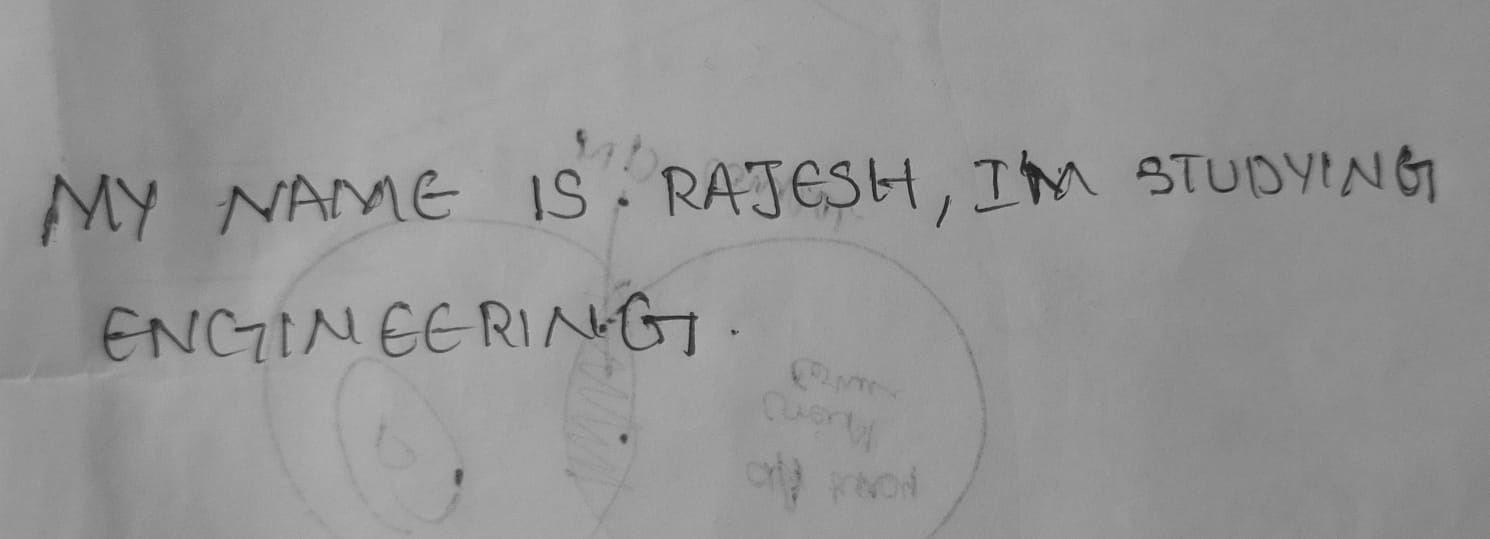 MY NAME IS: RAJESH, IM STUDYING
ENGINEERING.